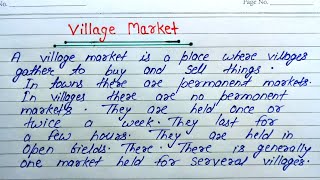 No.
Page No.
Village Market
A village market is a place where villages
gather to buy and sell things.
In towns there are permanent markets.
In villages there are no permanent
markets. They are held once or
twice a week. They last for
a few hours. They are held in
Open fields. There. There is generally
one market held for serveral villages.